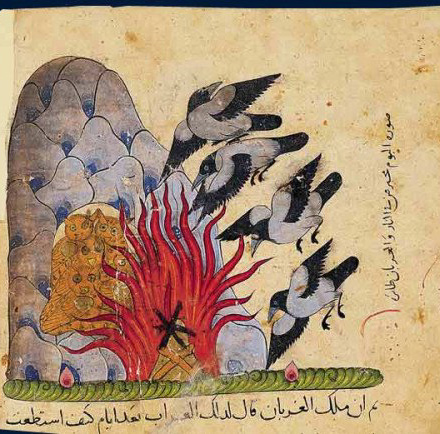 صورة البوم النار والغربان
ثم ان ملك الغربان قال لذلك الغراب بعد ايام كيف استطعت